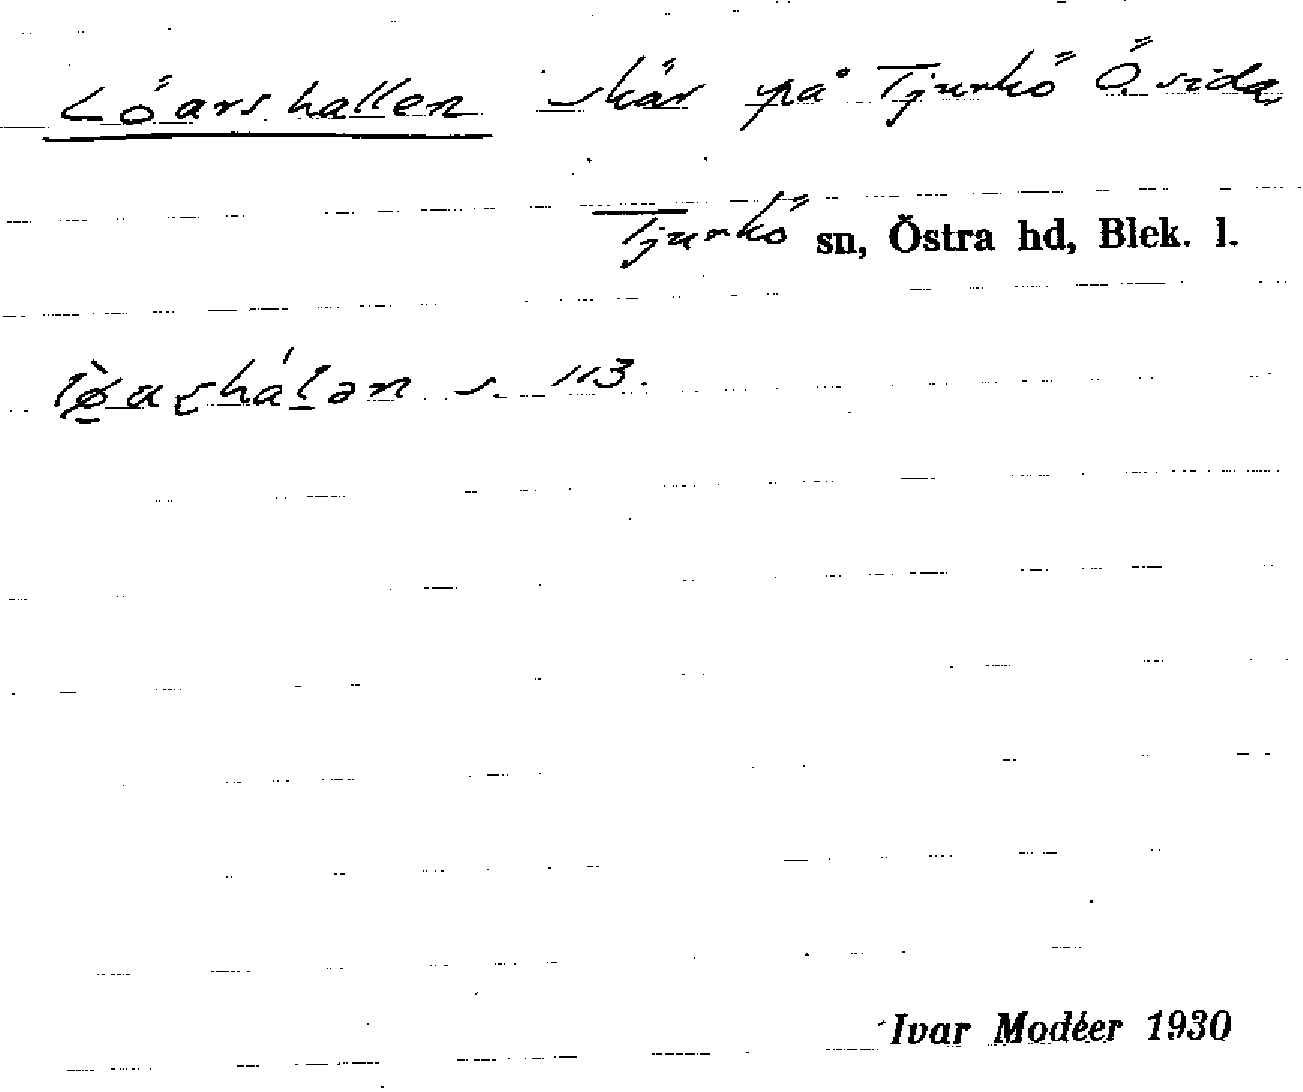 Löarshallen skär på Tjurkö Ö. sida
Tjurkö sn, Östra hd, Blek. l.
s. 113.
Ivar Modéer 1930